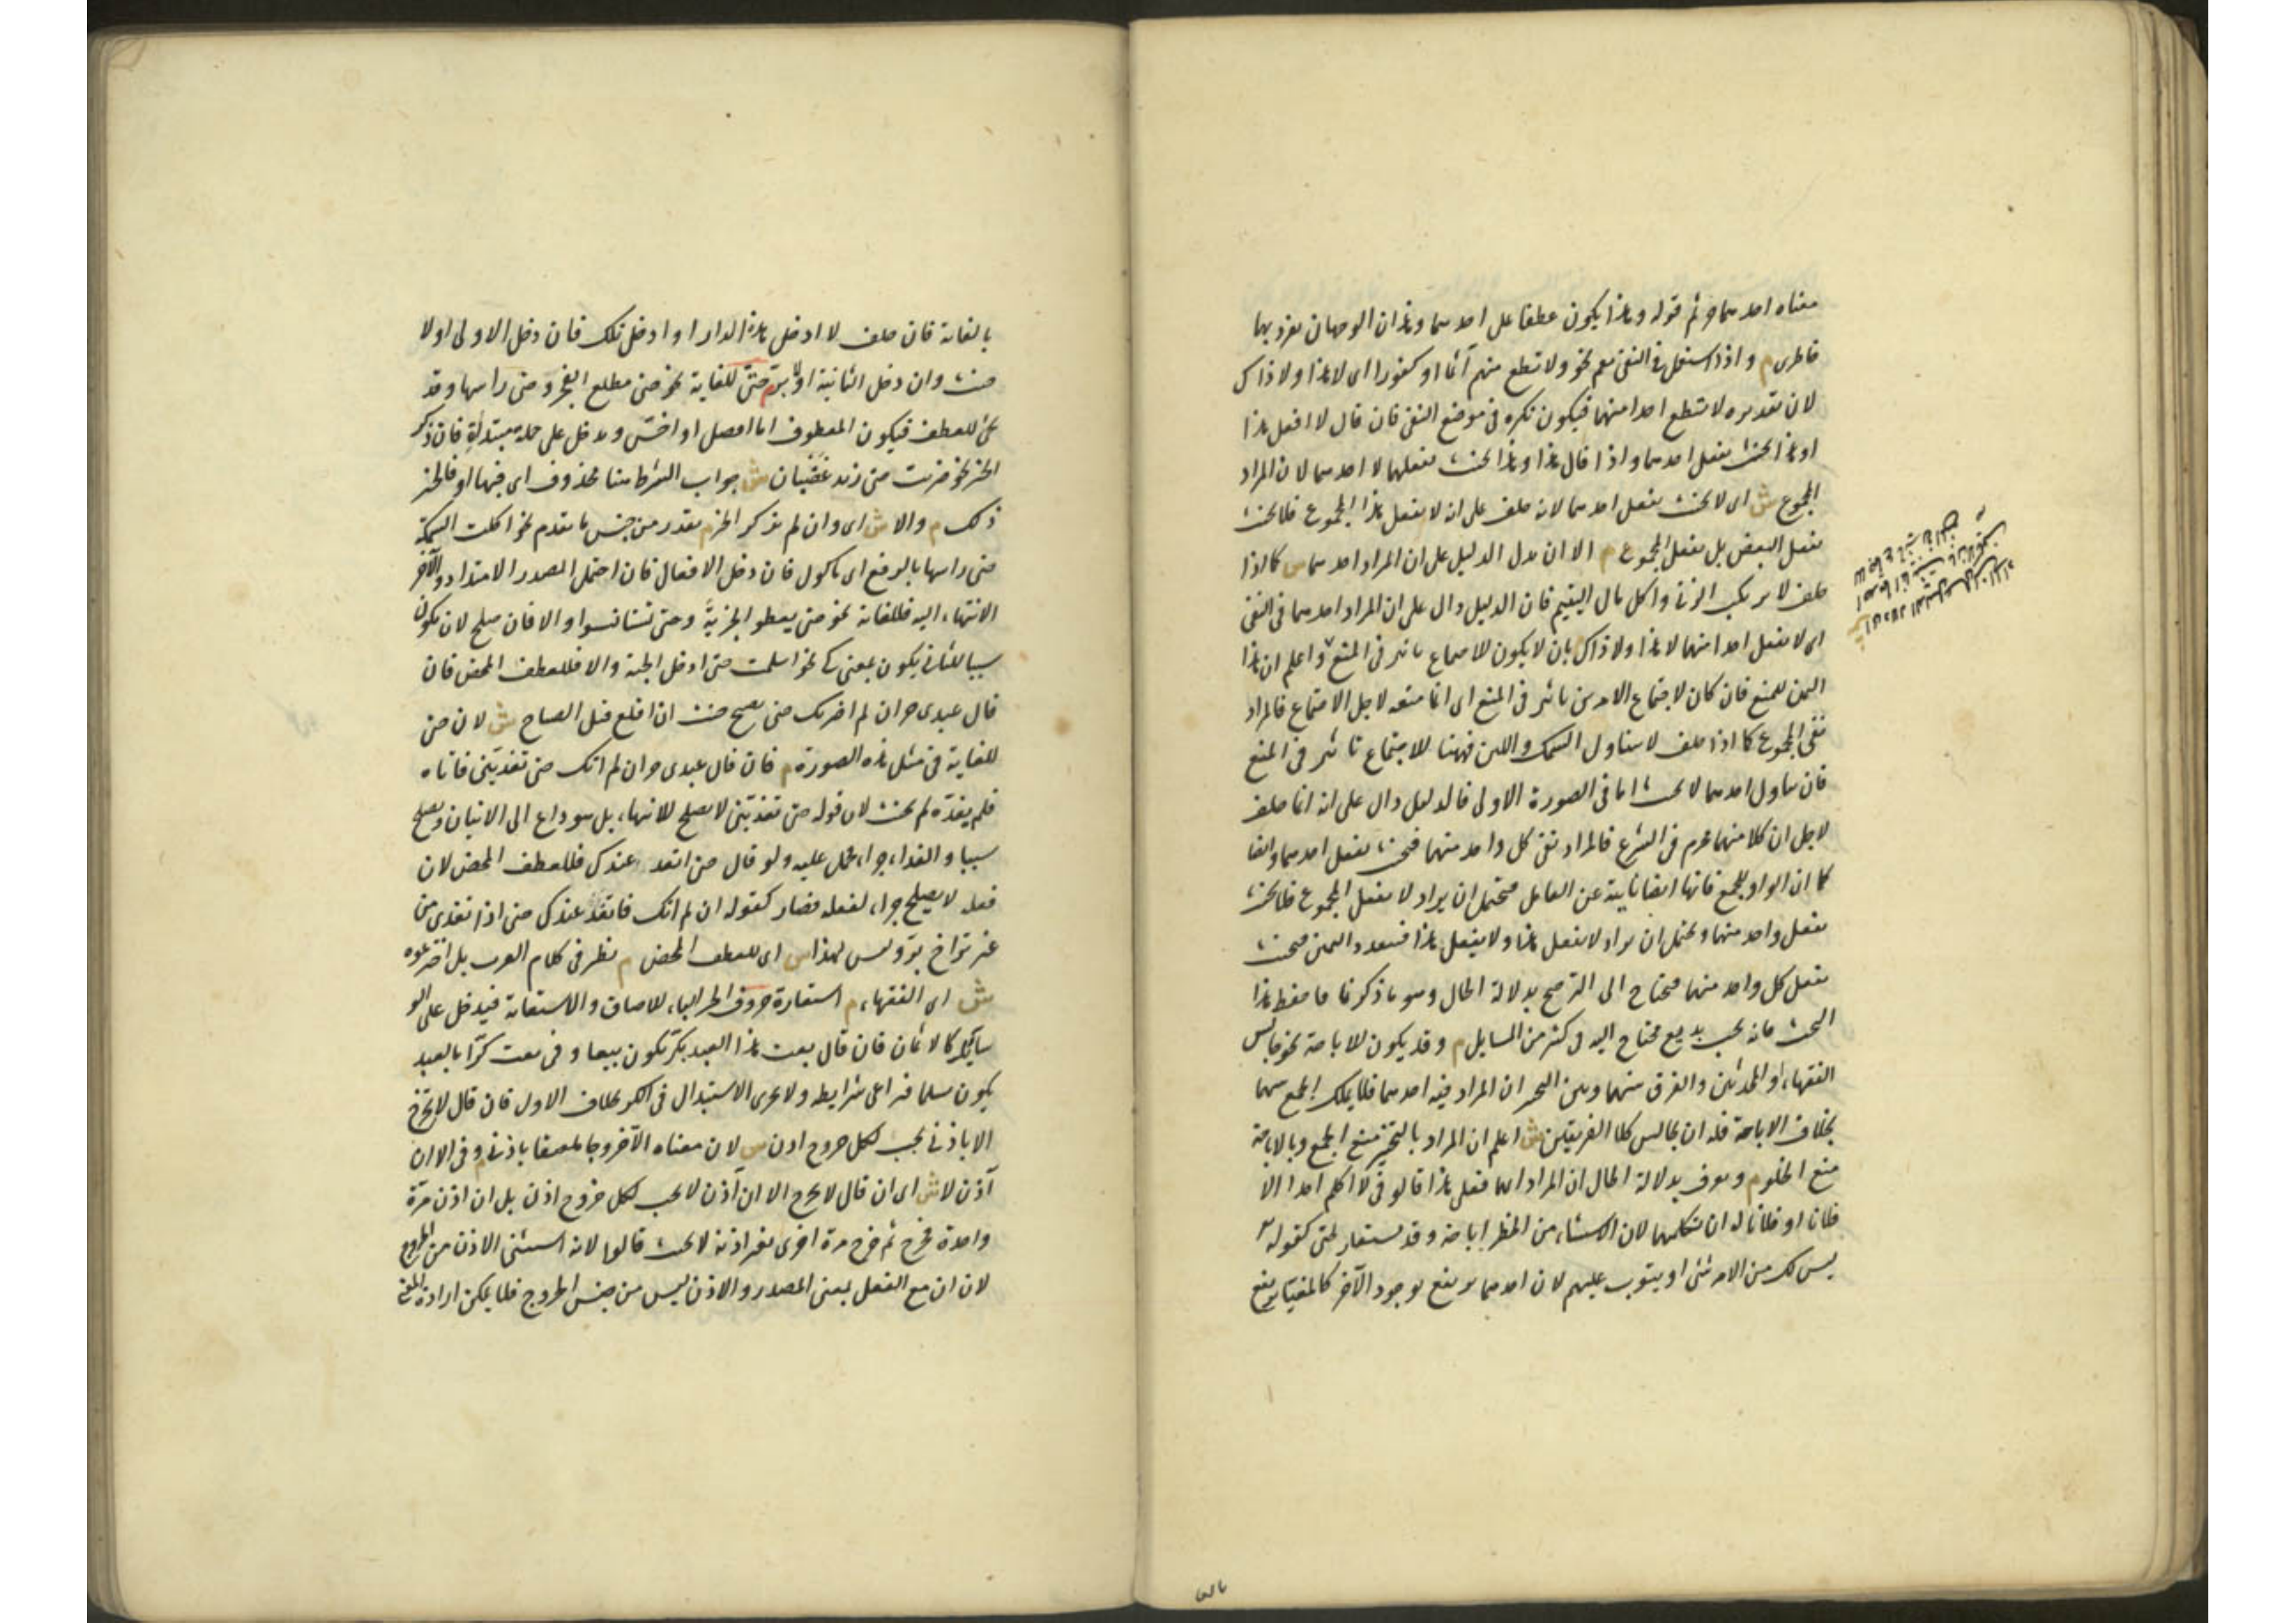 معناه احدهما حر ثم قوله وهذا يكون عطفا على احدهما وهذان الوجهان تفرد بهما
خاطري م واذا استعمل في النفي يعم نحو ولا تطع منهم آثما او كفورا اى لا هذا ولا ذاك
لان تقديره لا تطع احدا منهما فيكون نكرة في موضع النفي فان قال لا افعل هذا
او هذا يحنث بفعل احدهما واذا قال هذا وهذا يحنث بفعلهما لا احدهما لان المراد
المجموع ش اى لا يحنث بفعل احدهما لانه حلف على ان لا يفعل هذا المجموع فلا يحنث
بفعل البعض بل بفعل المجموع م الا ان يدل الدليل على ان المراد احدهما ش كما اذا
حلف لا يرتكب الزنى واكل مال اليتيم فان الدليل دال على ان المراد احدهما فى النفى
اى لا يفعل احدا منهما لا هذا ولا ذاك بان لا يكون للاجتماع تاثير فى المنع واعلم ان هذا
اليمين للمنع فان كان لاجتماع الامرين تاثير فى المنع اى انما منعه لاجل الاجتماع فالمراد
نفى المجموع كما اذا حلف لا يتناول السمك واللبن فههنا للاجتماع تاثير فى المنع
فان تناول احدهما لا يحنث اما فى الصورة الاولى فالدليل دال على انه انما حلف
لاجل ان كلا منهما محرم فى الشرع فالمراد نفى كل واحد منهما فيحنث بفعل احدهما وايضا
كما ان الواو للجمع فانها ايضا نايبة عن العامل فيحتمل ان يراد لا يفعل المجموع فلا يحنث
بفعل واحد منهما ويحتمل ان يراد لا يفعل هذا ولا يفعل هذا فيتعدد اليمين فيحنث
بفعل كل واحد منهما فيحتاج الى الترجيح بدلالة الحال وهو ما ذكرنا فاحفظ هذا
البحث فانه بحث بديع محتاج اليه فى كثير من المسايل م وقد يكون للاباحة نحو جالس
الفقهاء او المحدثين والفرق بينهما وبين التخيير ان المراد فيه احدهما فلا يملك الجمع بينهما
بخلاف الاباحة فله ان يجالس كلا الفريقين ش اعلم ان المراد بالتخيير منع الجمع وبالاباحة
منع الخلو م ويعرف بدلالة الحال ان المراد ايهما فعلى هذا قالوا فى لا اكلم احدا الا
فلانا او فلانا له ان يكلمهما لان الاستثناء من الحظر اباحة وقد يستعار لحتى كقوله
ليس لك من الامر شئ او يتوب عليهم لان احدهما يرتفع بوجود الآخر كالمغيا يرتفع
بالغاية فان حلف لا ادخل هذه الدار او ادخل تلك فان دخل الاولى اولا
حنث وان دخل الثانية اولا بر م حتى للغاية نحو حتى مطلع الفجر وحتى راسها وقد
تجئ للعطف فيكون المعطوف اما افضل او اخس ويدخل على جملة مبتدأة فان ذكر
الخبر نحو ضربت حتى زيد غضبان ش جواب الشرط هنا محذوف اى فبها او فالخبر
ذلك م والا ش اى وان لم يذكر الخبر م يقدر من جنس ما تقدم نحو اكلت السمكة
حتى راسها بالرفع اى ماكول فان دخل الافعال فان احتمل الصدر الامتداد والآخر
الانتهاء اليه فللغاية نحو حتى يعطوا الجزية وحتى تستانسوا والا فان صلح لان يكون
سببا للثانى يكون بمعنى كى نحو اسلمت حتى ادخل الجنة والا فللعطف المحض فان
قال عبدى حر ان لم اضربك حتى تصيح حنث ان اقلع قبل الصياح ش لان حتى
للغاية فى مثل هذه الصورة م فان قال عبدى حر ان لم اتك حتى تغديني فاتاه
فلم يغده لم يحنث لان قوله حتى تغديني لا يصلح للانتهاء بل هو داع الى الاتيان ويصلح
سببا والغداء جزاء فحمل عليه ولو قال حتى اتغد عندك فللعطف المحض لان
فعله لا يصلح جزاء لفعله فصار كقوله ان لم اتك فاتغد عندك حتى اذا تغدى من
غير تراخ بر وليس لهذا ش اى للعطف المحض م نظير فى كلام العرب بل اخترعوه
ش اى الفقهاء م استعارة حروف الجر الباء للالصاق والاستعانة فيدخل على الو
سائل كالاثمان فان قال بعت هذا العبد بكر يكون بيعا وفى بعت كرا بالعبد
يكون سلما فيراعى شرايطه ولا يجرى الاستبدال فى الكر بخلاف الاول فان قال لا تخرج
الا باذنى يجب لكل خروج اذن ش لان معناه الا خروجا ملصقا باذنى م وفى الا ان
آذن لا ش اى ان قال لا تخرج الا ان آذن لا يجب لكل خروج اذن بل ان اذن مرة
واحدة فخرج ثم خرج مرة اخرى بغير اذنه لا يحنث قالوا لانه استثنى الاذن من الخروج
لان ان مع الفعل بمعنى المصدر والاذن ليس من جنس الخروج فلا يمكن ارادة المعنى